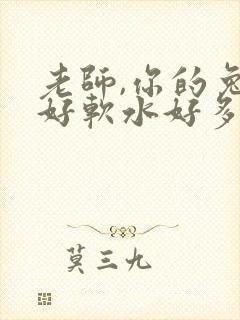 老師,你的兔
好軟水好多
莫三九